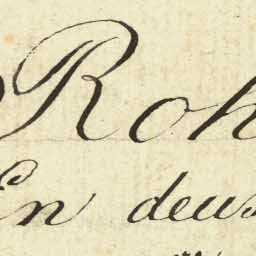 Roh
En deux